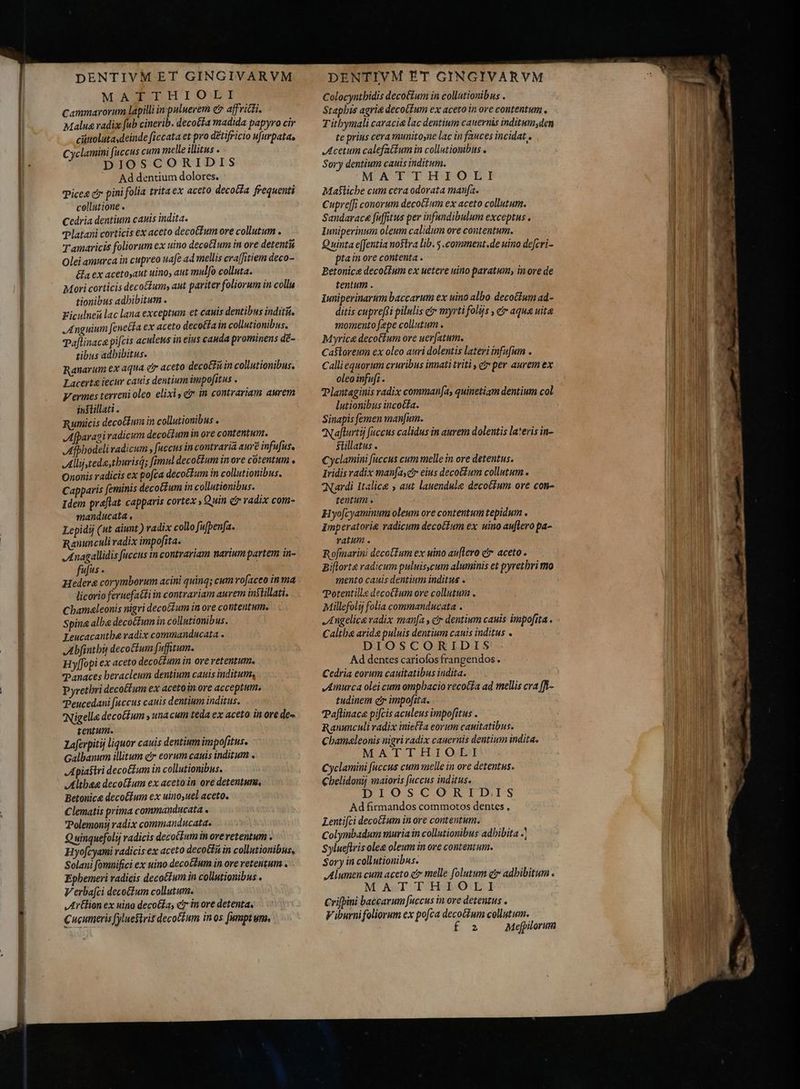 DENTIVM ET GINGIVARVM
MATTHIOLI
Cammarorum lapilli in puluerem & affricti.
Maluæ radix sub cinerib. decocta madida papyro cir
cũuoluta, deinde siccata et pro dẽtifricio usurpata.
Cyclamini succus cum melle illitus.
DIOSCORIDIS
Ad dentium dolores.
Piceæ & pini folia trita ex aceto decocta frequenti
collutione.
Cedria dentium cauis indita.
Platani corticis ex aceto decoctum ore collutum.
Tamaricis foliorum ex uino decoctum in ore detentũ
Olei amurca in cupreo uase ad mellis crassitiem deco-
cta ex aceto, aut uino, aut mulso colluta.
Mori corticis decoctum, aut pariter foliorum in collu
tionibus adhibitum.
Ficulneũ lac lana exceptum et cauis dentibus inditũ.
Anguium senecta ex aceto decocta in collutionibus.
Pastinacæ piscis aculeus in eius cauda prominens dẽ-
tibus adhibitus.
Ranarum ex aqua & aceto decoctũ in collutionibus.
Lacertæ iecur cauis dentium impositus.
Vermes terreni oleo elixi, & in contrariam aurem
instillati.
Rumicis decoctum in collutionibus.
Asparagi radicum decoctum in ore contentum.
Asphodeli radicum, succus in contrariã aurẽ infusus.
Allij, tedæ, thurisq; simul decoctum in ore cõtentum.
Ononis radicis ex posca decoctum in collutionibus.
Capparis seminis decoctum in collutionibus.
Idem præstat capparis cortex, Quin & radix com-
manducata.
Lepidij (ut aiunt) radix collo suspensa.
Ranunculi radix imposita.
Anagallidis succus in contrariam narium partem in-
fusus.
Hederæ corymborum acini quinq; cum rosaceo in ma
licorio feruefacti in contrariam aurem instillati.
Chamæleonis nigri decoctum in ore contentum.
Spinæ albæ decoctum in collutionibus.
Leucacanthæ radix commanducata.
Absinthij decoctum suffitum.
Hyssopi ex aceto decoctum in ore retentum.
Panaces heracleum dentium cauis inditum,
Pyrethri decoctum ex aceto in ore acceptum.
Peucedani succus cauis dentium inditus.
Nigellæ decoctum, una cum teda ex aceto in ore de-
tentum.
Laserpitij liquor cauis dentium impositus.
Galbanum illitum & eorum cauis inditum.
Apiastri decoctum in collutionibus.
Altheæ decoctum ex aceto in ore detentum,
Betonicæ decoctum ex uino, uel aceto.
Clematis prima commanducata.
Polemonij radix commanducata.
Quinquefolij radicis decoctum in ore retentum.
Hyoscyami radicis ex aceto decoctũ in collutionibus.
Solani somnifici ex uino decoctum in ore retentum.
Ephemeri radicis decoctum in collutionibus.
Verbasci decoctum collutum.
Arction ex uino decocta, & in ore detenta.
Cucumeris syluestris decoctum in os sumptum.
DENTIVM ET GINGIVARVM
Colocynthidis decoctum in collutionibus.
Staphis agriæ decoctum ex aceto in ore contentum.
Tithymali caraciæ lac dentium cauernis inditum, den
te prius cera munito, ne lac in fauces incidat.
Acetum calefactum in collutionibus.
Sory dentium cauis inditum.
MATTHIOLI
Mastiche cum cera odorata mansa.
Cupressi conorum decoctum ex aceto collutum.
Sandaracæ suffitus per infundibulum exceptus.
Iuniperinum oleum calidum ore contentum.
Quinta essentia nostra lib. 5. comment. de uino descri-
pta in ore contenta.
Betonicæ decoctum ex uetere uino paratum, in ore de
tentum.
Iuniperinarum baccarum ex uino albo decoctum ad-
ditis cupressi pilulis & myrti folijs, & aquæ uitæ
momento sæpe collutum.
Myricæ decoctum ore uersatum.
Castoreum ex oleo auri dolentis lateri infusum.
Calli equorum cruribus innati triti, & per aurem ex
oleo infusi.
Plantaginis radix commansa, quinetiam dentium col
lutionibus incocta.
Sinapis semen mansum.
Nasturtij succus calidus in aurem dolentis lateris in-
stillatus.
Cyclamini succus cum melle in ore detentus.
Iridis radix mansa, & eius decoctum collutum.
Nardi Italicæ, aut lauendulæ decoctum ore con-
tentum.
Hyoscyaminum oleum ore contentum tepidum.
Imperatoriæ radicum decoctum ex uino austero pa-
ratum.
Rosmarini decoctum ex uino austero & aceto.
Bistortæ radicum puluis, cum aluminis et pyrethri mo
mento cauis dentium inditus.
Potentillæ decoctum ore collutum.
Millefolij folia commanducata.
Angelicæ radix mansa, & dentium cauis imposita.
Calthæ aridæ puluis dentium cauis inditus.
DIOSCORIDIS
Ad dentes cariosos frangendos.
Cedria eorum cauitatibus indita.
Amurca olei cum omphacio recocta ad mellis crassi-
tudinem & imposita.
Pastinacæ piscis aculeus impositus.
Ranunculi radix iniecta eorum cauitatibus.
Chamæleonis nigri radix cauernis dentium indita.
MATTHIOLI
Cyclamini succus cum melle in ore detentus.
Chelidonij maioris succus inditus.
DIOSCORIDIS
Ad firmandos commotos dentes.
Lentisci decoctum in ore contentum.
Colymbadum muria in collutionibus adhibita.
Syluestris oleæ oleum in ore contentum.
Sory in collutionibus.
Alumen cum aceto & melle solutum & adhibitum.
MATTHIOLI
Crispini baccarum succus in ore detentus.
Viburni foliorum ex posca decoctum collutum.
f 2 Mespilorum